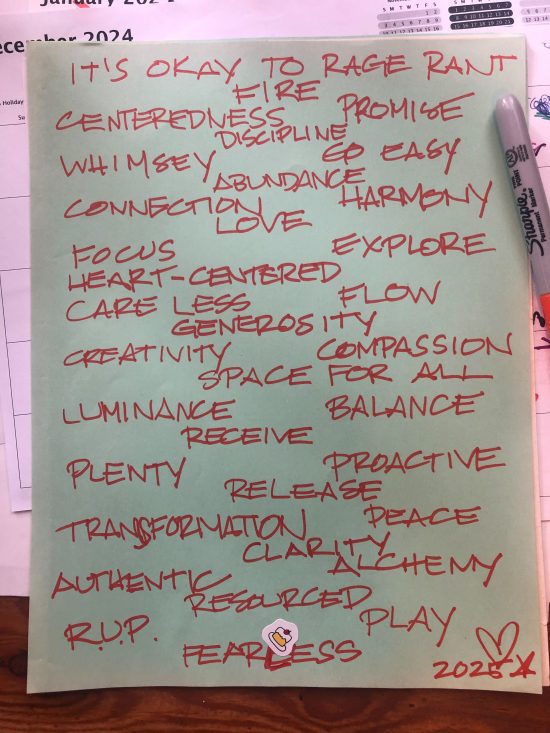 January 202
December 2024
Holiday
IT'S OKAY TO RAGE RANT
FIRE
CENTEREDNESS PROMISE
DISCIPLINE
WHIMSEY GO EASY
ABUNDANCE
CONNECTION HARMONY
LOVE
FOCUS EXPLORE
HEART-CENTERED
CARE LESS FLOW
GENEROSITY
CREATIVITY COMPASSION
SPACE FOR ALL
LUMINANCE BALANCE
RECEIVE
PLENTY PROACTIVE
RELEASE
TRANSFORMATION PEACE
CLARITY
AUTHENTIC ALCHEMY
RESOURCED
R.U.P. PLAY
FEARLESS
2025
Sharpie